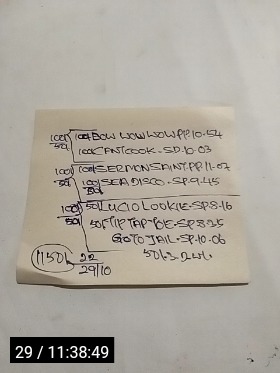 100 BOW WOW WOW PP.10-54
100 CANTCOOK-SD.10-03
100 SERMONSAINT.PP.11-07
100 SEADISCO-SP.9-45
50 LUCIOLOOKIE-SP8-16
50 TIPTAPTOE-SP8-25
GOTOJAIL-SP.10-06
1150
29/10
29 / 11:38:49